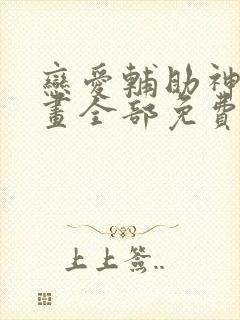 戀愛輔助神
畫全部免費
上上簽..